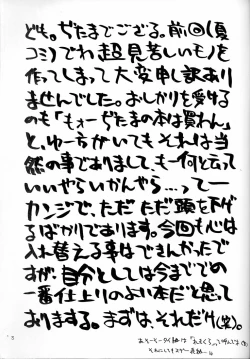 ども。ぢたまでござる。前回(夏
コミ)でわ超見苦しいモノを
作ってしまって大変申し訳あり
ませんでした。おしかりを受ける
のも「もォーぢたまの本は買わん」
と、ゆー方がいてもそれは当
然の事でありまして、も一何と云って
いいやらいかんやら…って一
カンジで、ただ ただ頭を下げ
るばかりであります。今回も心は
入れ替える事はできんかったで
すが、自分としては今までの
一番仕上りのよい本だと思って
おりまする。まずは、それだけ(笑)。
3